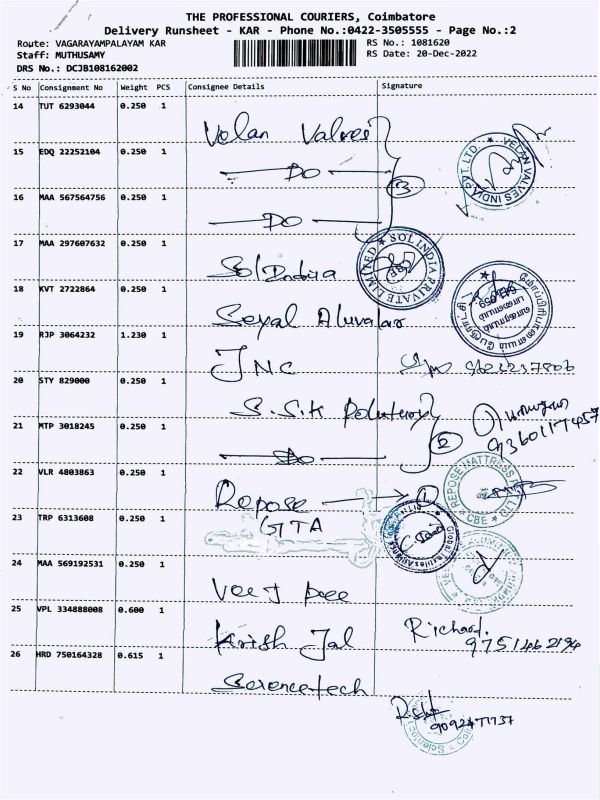 THE PROFESSIONAL COURIERS, Coimbatore
Delivery Runsheet - KAR - Phone No.:0422-3505555 - Page No.:2
Route: VAGARAYAMPALAYAM KAR
RS No.: 1081620
Staff: MUTHUSAMY
RS Date: 20-Dec-2022
DRS No.: DCJB108162002
S No Consignment No Weight PCS Consignee Details Signature
14 TUT 6293044 0.250 1
Velan Valves
VELAN VALVES INDIA PVT. LTD.
15 EDQ 22252104 0.250 1
DO
3
16 MAA 567564756 0.250 1
DO
17 MAA 297607632 0.250 1
Sol India
SOL INDIA PRIVATE LIMITED
18 KVT 2722864 0.250 1
Seyal Aluvalar
19 RJP 3064232 1.230 1
JNC
20 STY 829000 0.250 1
S.S.K
21 MTP 3018245 0.250 1
DO
2
9360117457
22 VLR 4803863 0.250 1
Repose
1
REPOSE MATTRESS
CBE
23 TRP 6313608 0.250 1
GTA
24 MAA 569192531 0.250 1
Veejay
25 VPL 334888008 0.600 1
Krish Jal
Richard.
9751462194
26 HRD 750164328 0.615 1
Sciencetech